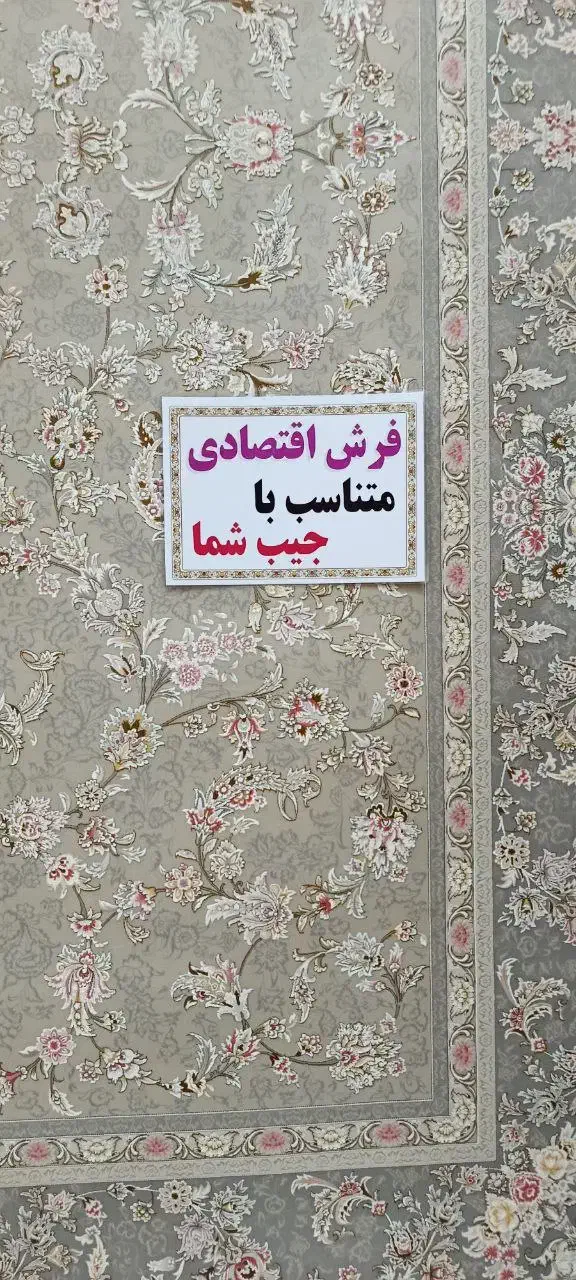 فرش اقتصادی
متناسب با
جیب شما